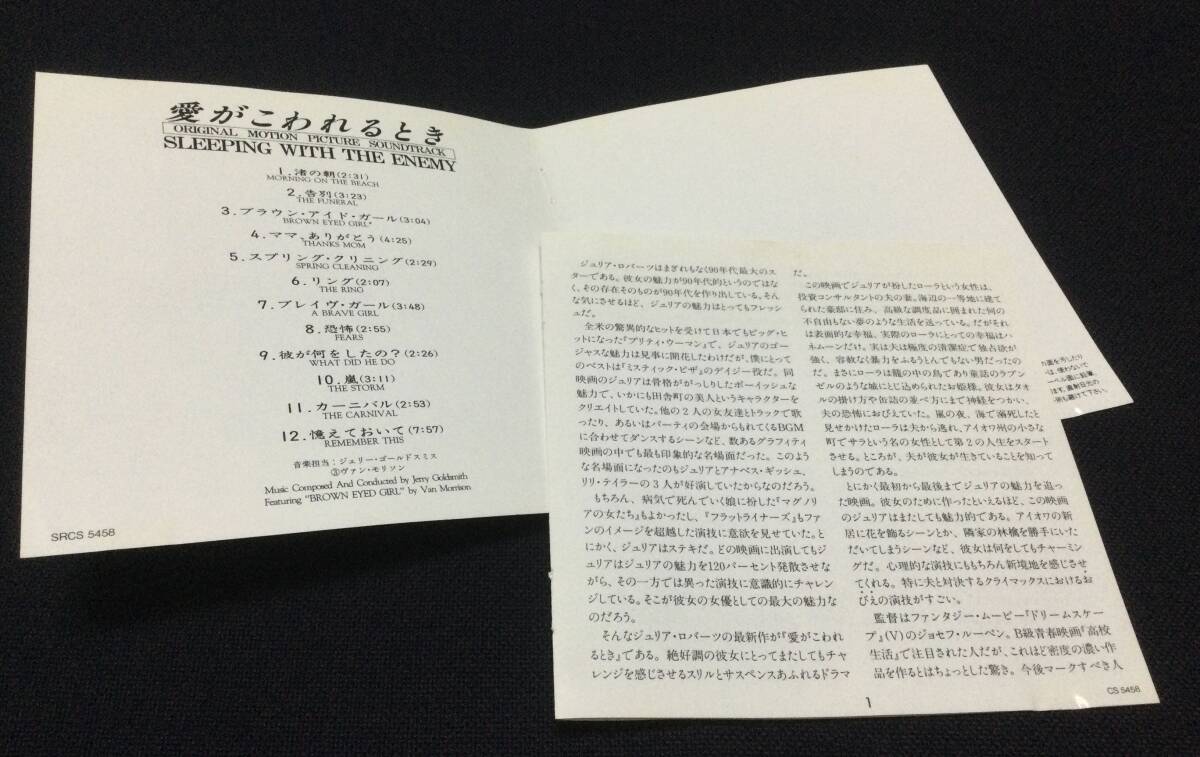 愛がこわれるとき
ORIGINAL MOTION PICTURE SOUNDTRACK
SLEEPING WITH THE ENEMY
1.渚の朝(2:31)
MORNING ON THE BEACH
2.告別(3:23)
THE FUNERAL
3.ブラウン・アイド・ガール(3:04)
BROWN EYED GIRL*
4.ママ、ありがとう(4:25)
THANKS MOM
5.スプリング・クリニング(2:29)
SPRING CLEANING
6.リング(2:07)
THE RING
7.ブレイヴ・ガール(3:48)
A BRAVE GIRL
8.恐怖(2:55)
FEARS
9.彼が何をしたの?(2:26)
WHAT DID HE DO
10.嵐(3:11)
THE STORM
11.カーニバル(2:53)
THE CARNIVAL
12.憶えておいて(7:57)
REMEMBER THIS
音楽担当:ジェリー・ゴールドスミス
③ヴァン・モリソン
Music Composed And Conducted by Jerry Goldsmith
Featuring "BROWN EYED GIRL" by Van Morrison
SRCS 5458
ジュリア・ロバーツはまぎれもなく90年代最大のス
ターである。彼女の魅力が90年代的というのではな
く、その存在そのものが90年代を作り出している。そん
な気にさせるほど、ジュリアの魅力はとってもフレッシ
ュだ。
全米の驚異的なヒットを受けて日本でもビッグ・ヒ
ットになった『プリティ・ウーマン』で、ジュリアのゴー
ジャスな魅力は見事に開花したわけだが、僕にとって
のベストは『ミスティック・ピザ』のデイジー役だ。同
映画のジュリアは骨格ががっしりしたボーイッシュな
魅力で、いかにも田舎町の美人というキャラクターを
クリエイトしていた。他の2人の女友達とトラックで歌
ったり、あるいはパーティの会場からもれてくるBGM
に合わせてダンスするシーンなど、数あるグラフィティ
映画の中でも最も印象的な名場面だった。このよう
な名場面になったのもジュリアとアナベス・ギッシュ、
リリ・テイラーの3人が好演していたからなのだろう。
もちろん、病気で死んでいく娘に扮した『マグノリ
アの女たち』もよかったし、『フラットライナーズ』もファ
ンのイメージを超越した演技に意欲を見せていた。と
にかく、ジュリアはステキだ。どの映画に出演してもジ
ュリアはジュリアの魅力を120パーセント発散させな
がら、その一方では異った演技に意識的にチャレン
ジしている。そこが彼女の女優としての最大の魅力な
のだろう。
そんなジュリア・ロバーツの最新作が『愛がこわれ
るとき』である。絶好調の彼女にとってまたしてもチャ
レンジを感じさせるスリルとサスペンスあふれるドラマ
だ。
この映画でジュリアが扮したローラという女性は、
投資コンサルタントの夫の妻。海辺の一等地に建て
られた豪邸に住み、高級な調度品に囲まれた何の
不自由もない夢のような生活を送っている。だがそれ
は表面的な幸福、実際のローラにとっての幸福はハ
ネムーンだけ。実は夫は極度の清潔症で独占欲が
強く、容赦なく暴力をふるうとんでもない男だったの
だ。まさにローラは籠の中の鳥であり童話のラプン
ゼルのような城にとじ込められたお姫様。彼女はタオ
ルの掛け方や缶詰の並べ方にまで神経をつかい、
夫の恐怖におびえていた。嵐の夜、海で溺死したと
見せかけたローラは夫から逃れ、アイオワ州の小さな
町でサラという名の女性として第2の人生をスタート
させる。ところが、夫が彼女が生きていることを知って
しまうのである。
とにかく最初から最後までジュリアの魅力を追っ
た映画。彼女のために作ったといえるほど、この映画
のジュリアはまたしても魅力的である。アイオワの新
居に花を飾るシーンとか、隣家の林檎を勝手にいた
だいてしまうシーンなど、彼女は何をしてもチャーミン
グだ。心理的な演技にももちろん新境地を感じさせ
てくれる。特に夫と対決するクライマックスにおけるお
びえの演技がすごい。
監督はファンタジー・ムービー『ドリームスケー
プ』(V)のジョセフ・ルーベン。B級青春映画『高校
生活』で注目された人だが、これほど密度の濃い作
品を作るとはちょっとした驚き。今後マークすべき人
1
CS 5458